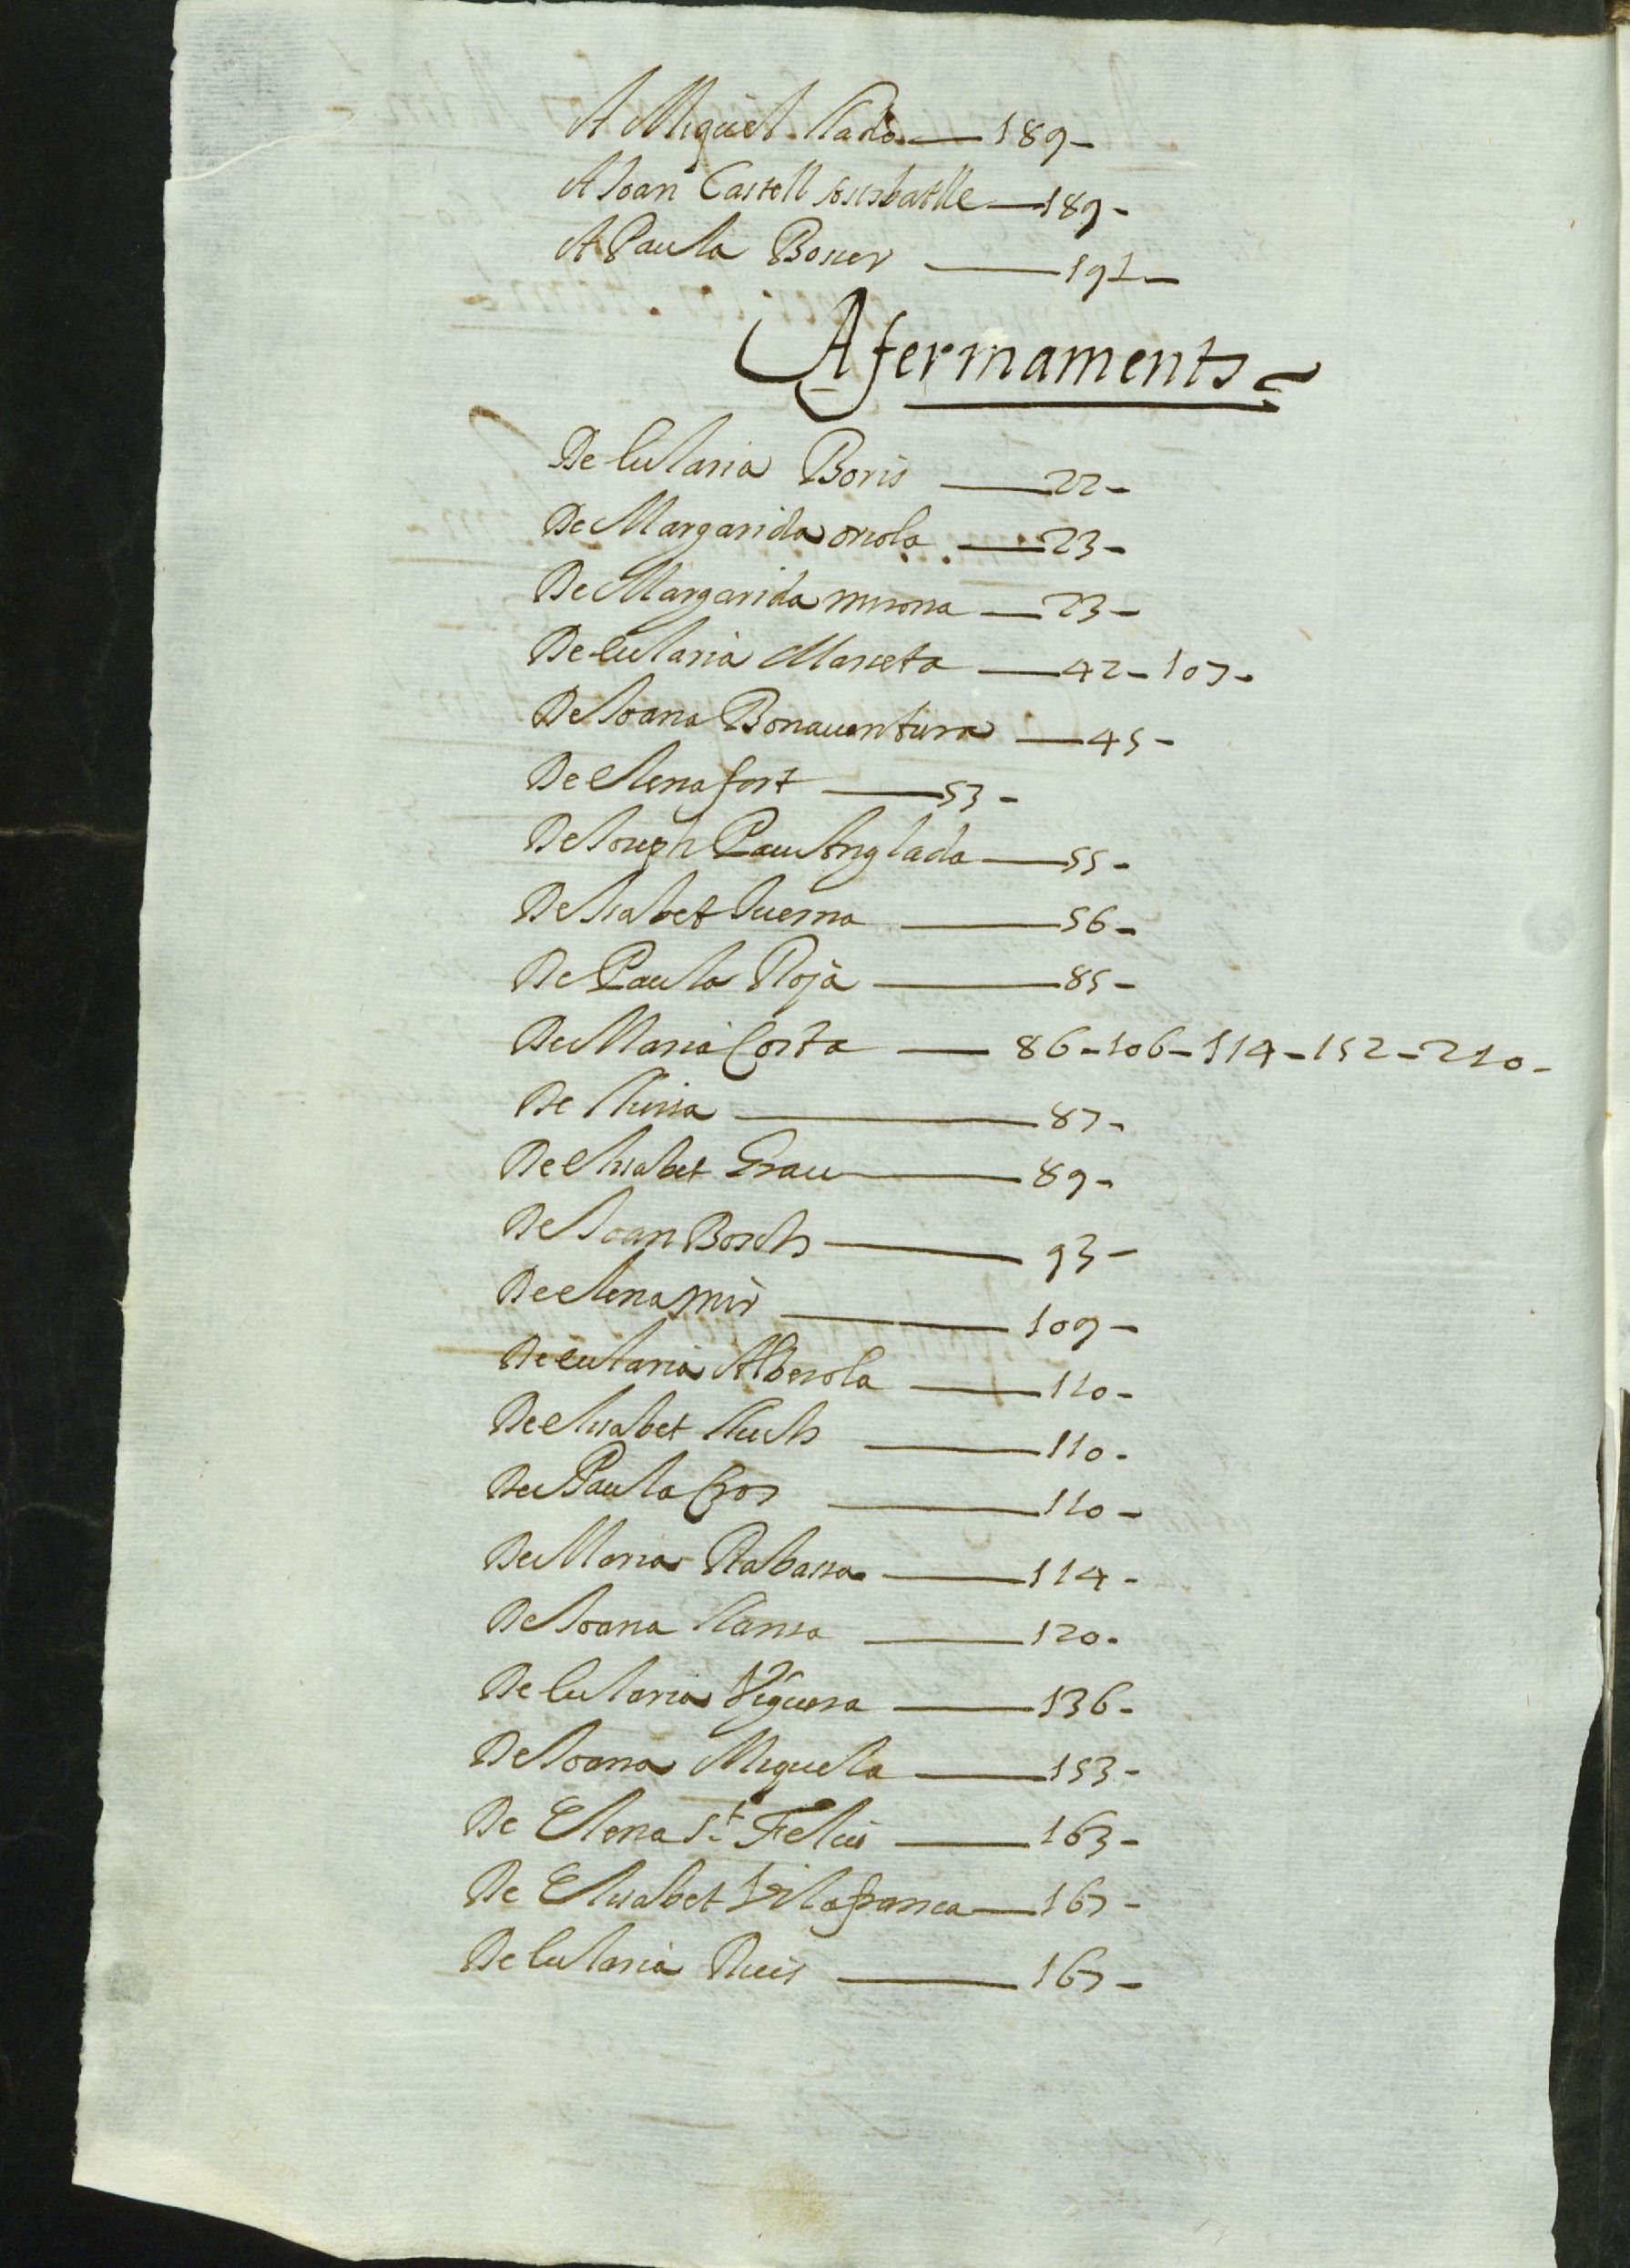 A Miquel llado — 189 -
A Joan Castell sotsbatlle — 189 -
A Paula Boner — 191 -
Afermaments
De Eularia Boris — 22 -
De Margarida oriola — 23 -
De Margarida mirona — 23 -
De eularia Marieta — 42 - 107 -
De Joana Bonauentura — 45 -
De elena fort — 53 -
De Joseph Pau Anglada — 55 -
De Isabet — 56 -
De Paula Roja — 85 -
De Maria Costa — 86 - 106 - 114 - 152 - 210 -
De llusia — 87 -
De elisabet Grau — 89 -
De Joan Bosch — 93 -
De elena mir — 109 -
De eularia Alberola — 110 -
De elisabet lluch — 110 -
De Paula Cros — 110 -
De Maria Rabassa — 114 -
De Joana llansa — 120 -
De Eularia Viguera — 136 -
De Joana Miquela — 153 -
De Elena St Feliu — 163 -
De Elisabet Vilafranca — 167 -
De Eularia Ruis — 167 -